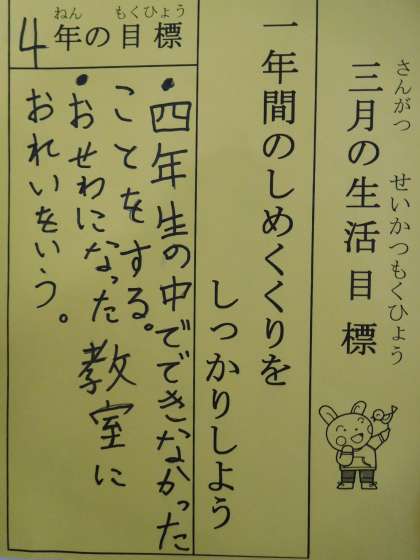 さんがつ せいかつもくひょう
三月の生活目標
一年間のしめくくりを
しっかりしよう
ねん もくひょう
4年の目標
・四年生の中でできなかった
ことをする。
・おせわになった教室に
おれいをいう。